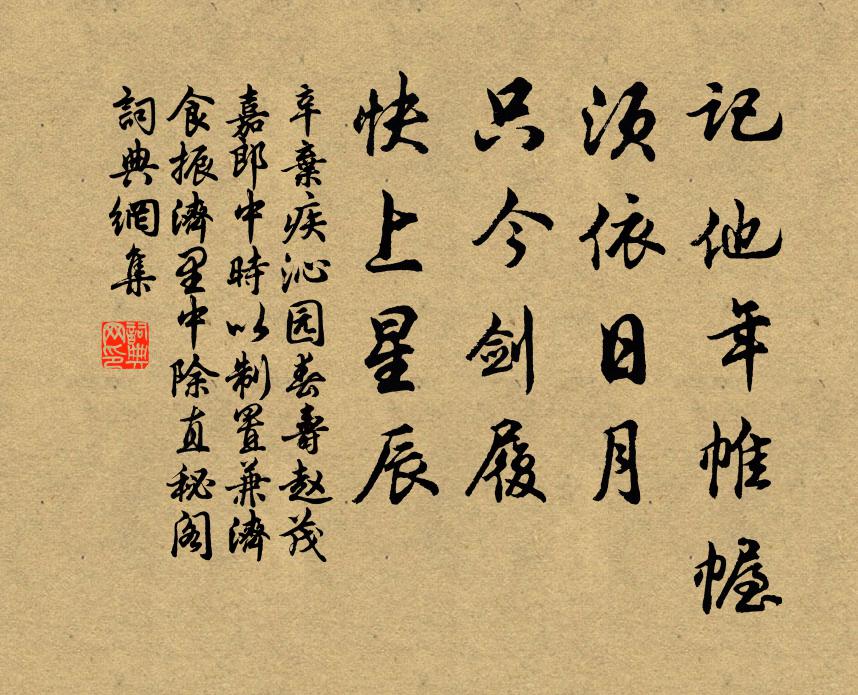 记他年帷幄
须依日月
只今剑履
快上星辰
辛棄疾沁园春壽赵茂
嘉郎中時以制置兼濟
食振濟里中除直秘阁
詞典網集
詞典网印